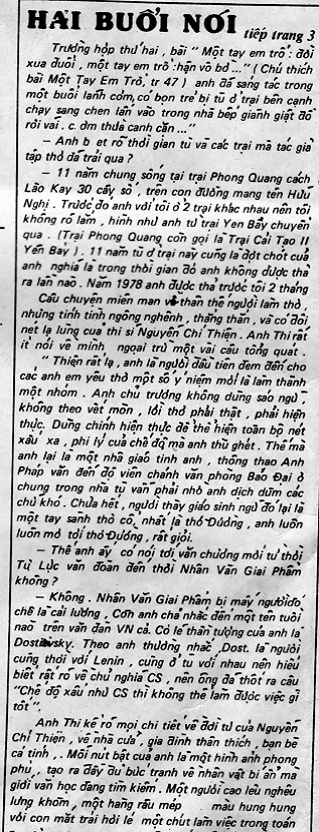 HAI BUỔI NÓI tiếp trang 3
Trường hợp thứ hai, bài "Một tay em trổ: đời
xua đuổi, một tay em trổ: hận vô bờ..." (Chú thích
bài Một Tay Em Trổ, tr 47) anh đã sáng tác trong
một buổi lãnh cơm, có bọn trẻ bị tù ở trại bên cạnh
chạy sang chen lấn vào trong nhà bếp giành giật đồ
rơi vãi. cơm thừa canh cặn..."
— Anh biết rõ thời gian tù và các trại mà tác giả
tập thơ đã trải qua?
— 11 năm chung sống tại trại Phong Quang cách
Lào Kay 30 cây số, trên con đường mang tên Hữu
Nghị. Trước đó anh với tôi ở 2 trại khác nhau nên tôi
không rõ lắm, hình như anh từ trại Yên Báy chuyển
qua. (Trại Phong Quang còn gọi là Trại Cải Tạo II
Yên Báy). 11 năm tù ở trại này cũng là đợt chót của
anh nghĩa là trong thời gian đó anh không được thả
ra lần nào. Năm 1978 anh được thả trước tôi 2 tháng
Câu chuyện miên man về thân thế người làm thơ,
những tính tình ngông nghênh, thẳng thắn, và có đôi
nét lạ lùng của thi sĩ Nguyễn Chí Thiện. Anh Thi rất
ít nói về mình ngoại trừ một vài câu tổng quát.
"Thiện rất lạ, anh là người đầu tiên đem đến cho
các anh em yêu thơ một số ý niệm mới là làm thành
một nhóm. Anh chủ trương không dùng sáo ngữ,
không theo vết mòn, lời thơ phải thật, phải hiện
thực. Dùng chính hiện thực để thể hiện toàn bộ nét
xấu xa, phi lý của chế độ mà anh thù ghét. Thế mà
anh lại là một nhà giáo tinh anh, thông thạo Anh
Pháp văn đến độ viên chánh văn phòng Bảo Đại ở
chung trong nhà tù vẫn phải nhờ anh dịch dùm các
chữ khó. Chưa hết, người thầy giáo sinh ngữ đó lại là
một tay sành thơ cổ, nhất là thơ Đường, anh luôn
luôn mở tới thơ Đường, rất giỏi.
— Thế anh ấy có nói tới văn chương mới từ thời
Tự Lực văn đoàn đến thời Nhân Văn Giai Phẩm
không?
— Không. Nhân Văn Giai Phẩm bị mấy người đó
chê là cải lương, Còn anh chả nhắc đến một tên tuổi
nào trên văn đàn VN cả. Có lẽ thần tượng của anh là
Dostievsky. Theo anh thường nhắc, Dost. là người
cùng thời với Lenin, cùng ở tù với nhau nên hiểu
biết rất rõ về chủ nghĩa CS, nên ông đã thốt ra câu
"Chế độ xấu như CS thì không thể làm được việc gì
tốt".
Anh Thi kể rõ mọi chi tiết về đời tư của Nguyễn
Chí Thiện, về nhà cửa, gia đình thân thích, bạn bè
cá tính,.. Mỗi nút bật của anh là một hình ảnh phong
phú, tạo ra đầy đủ bức tranh về nhân vật bí ẩn mà
giới văn học đang tìm kiếm. Một người cao lêu nghêu
lưng khòm, một hàng râu mép màu hung hung
với con mắt trái hơi lé một chút làm việc trong toán